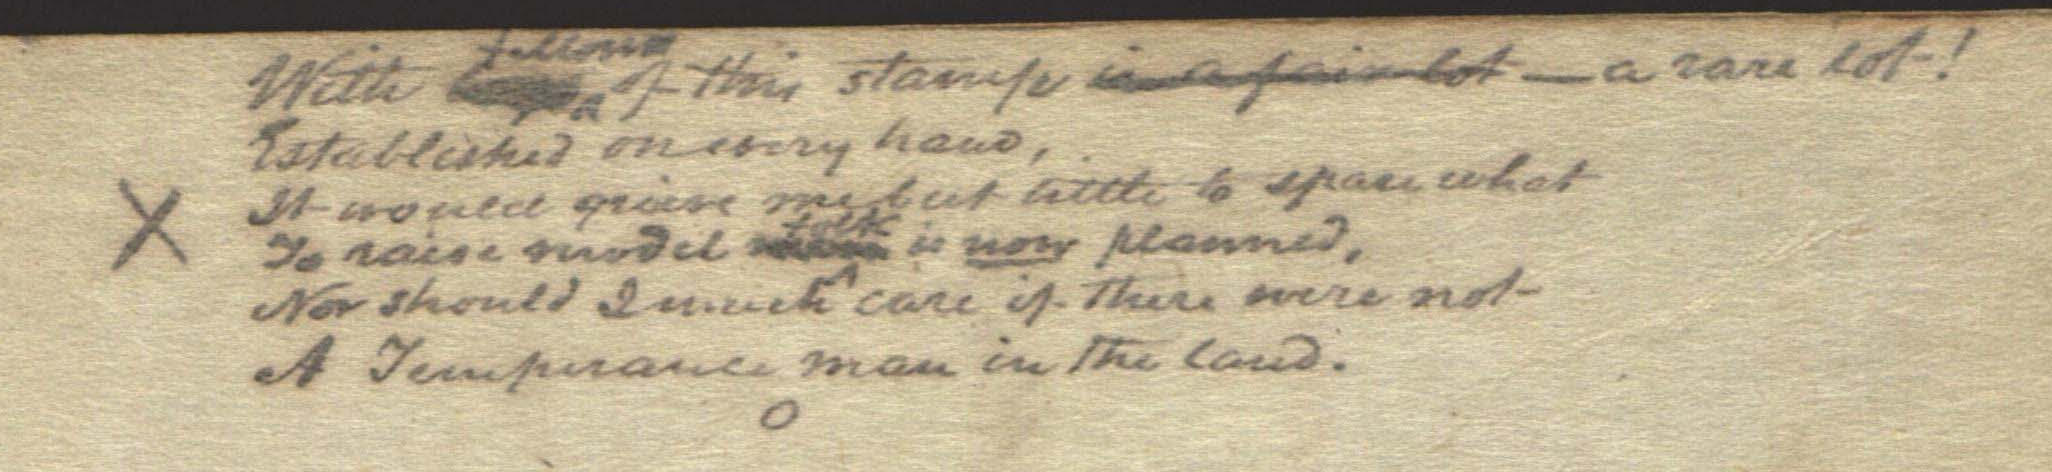 fellows
With of this stamp is a fair lot — a rare lot!
Established on every hand,
It would grieve me but little to spare what
folk
To raise model men is now planned,
Nor should I much care if there were not
A Temperance man in the land.